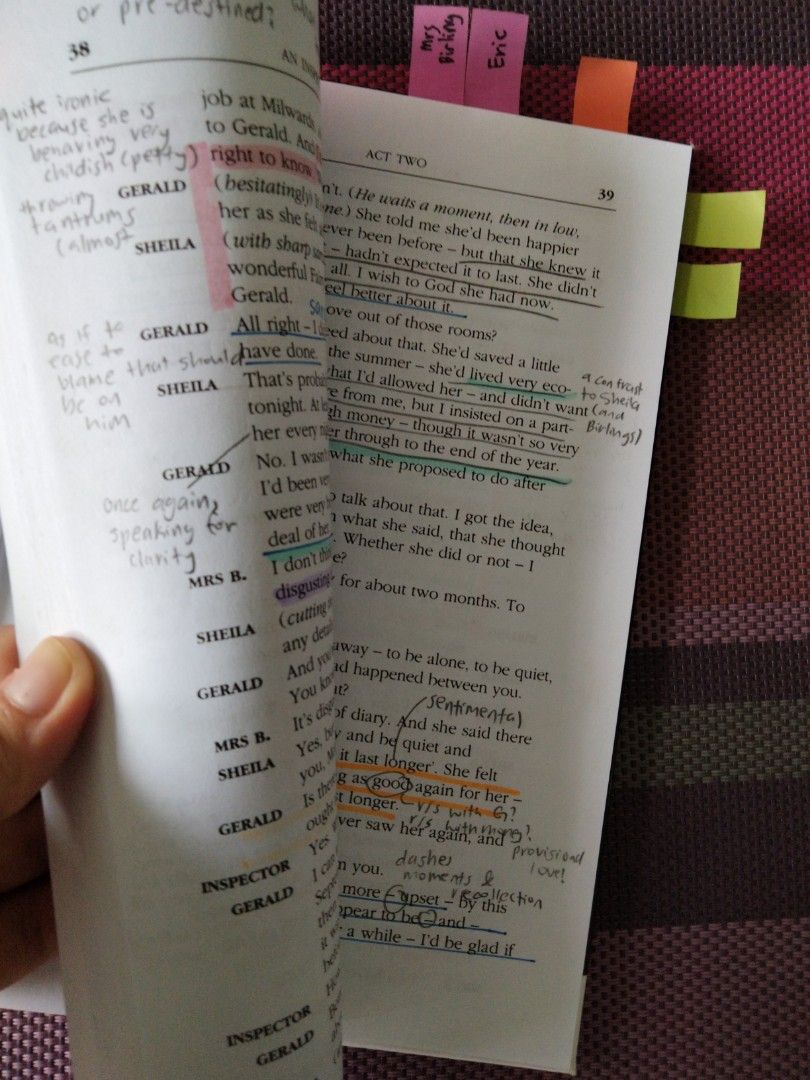 or pre-destined?
Mrs Birling
Eric
38
AN INSP
quite ironic
because she is
behaving very
childish (petty)
throwing
tantrums
(almost
job at Milwards
to Gerald. And
right to know
GERALD (hesitatingly)
her as she felt
SHEILA (with sharp
wonderful
Gerald.
GERALD All right – I
have done.
as if to
ease to
blame that should
be on
him
SHEILA That's proba
tonight. At
her every
GERALD No. I wasn
I'd been ve
were very
deal of he
once again,
speaking for
clarity
MRS B. I don't thi
disgusting
SHEILA (cutting
any deta
GERALD And you
You kno
MRS B. It's disg
SHEILA Yes,
you,
GERALD Is the
ough
INSPECTOR Yes
GERALD I can
Sept
INSPECTOR
GERALD
ACT TWO
39
n't. (He waits a moment, then in low,
ne.) She told me she'd been happier
ever been before – but that she knew it
– hadn't expected it to last. She didn't
all. I wish to God she had now.
eel better about it.
ove out of those rooms?
eed about that. She'd saved a little
the summer – she'd lived very eco-
hat I'd allowed her – and didn't want
e from me, but I insisted on a part-
gh money – though it wasn't so very
er through to the end of the year.
what she proposed to do after
a contrast
to Sheila
(and
Birlings)
o talk about that. I got the idea,
n what she said, that she thought
. Whether she did or not – I
e?
for about two months. To
away – to be alone, to be quiet,
ad happened between you.
ut?
sentimental
of diary. And she said there
y and be quiet and
it last longer'. She felt
g as good again for her –
t longer.
r/s with G?
r/s with mong?
ver saw her again, and
provisional
love!
n you.
dashes
moments &
recollection
more – upset – by this
ppear to be – and –
a while – I'd be glad if